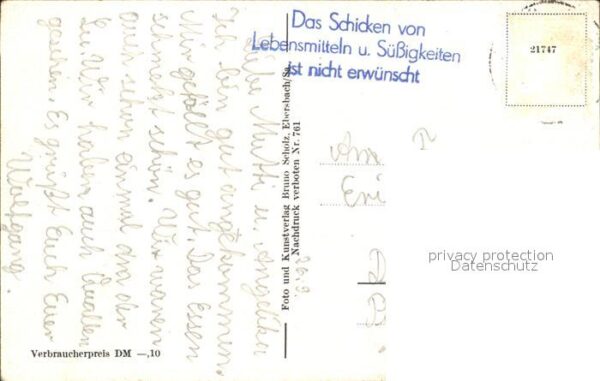 Das Schicken von
Lebensmitteln u. Süßigkeiten
ist nicht erwünscht
21747
Liebe Mutti u. Angelika
Ich bin gut angekommen.
Mir gefällt es gut. Das Essen
schmekt schön. Wir waren
auch schon einmal an der
See. Wir haben auch Quallen
gesehen. Es grüßt Euch Euer
Wolfgang.
Foto und Kunstverlag Bruno Scholz, Ebersbach/Sa.
Nachdruck verboten Nr. 761
An
privacy protection
Datenschutz
Verbraucherpreis DM —,10